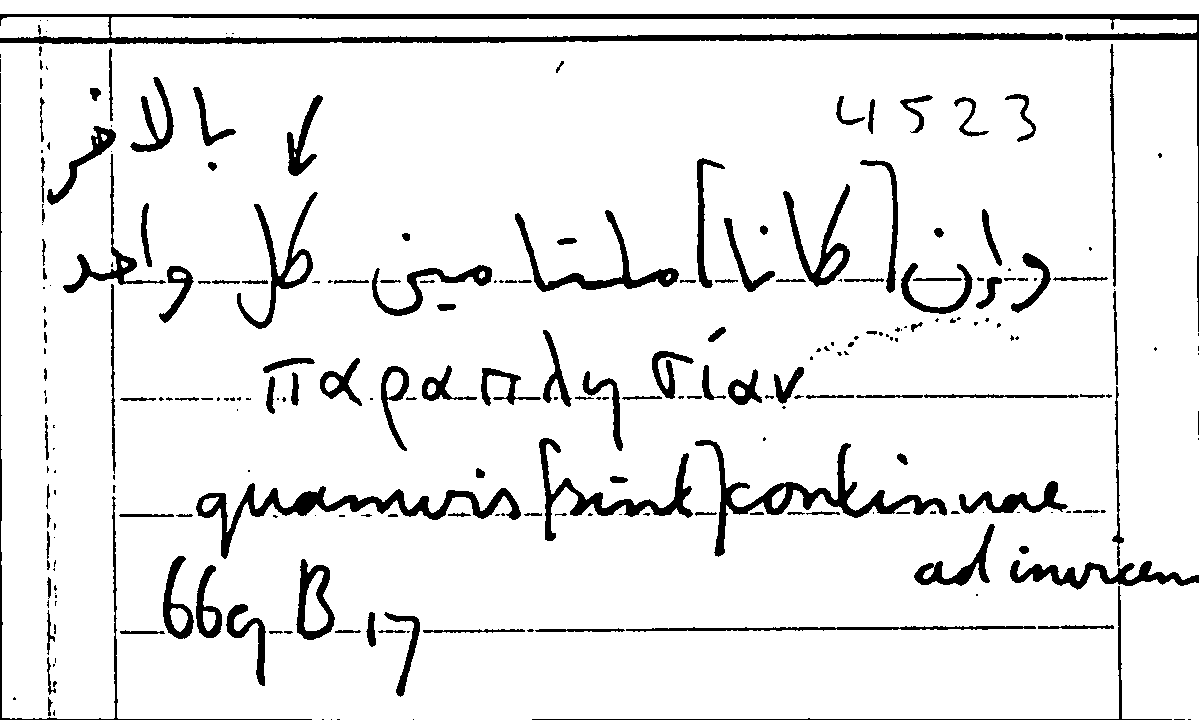 4523
بالاخر
وإن [كانا] ملتامين كل واحد
παραπλησίαν
quamvis [sint] continuae
ad invicem
669 B 17